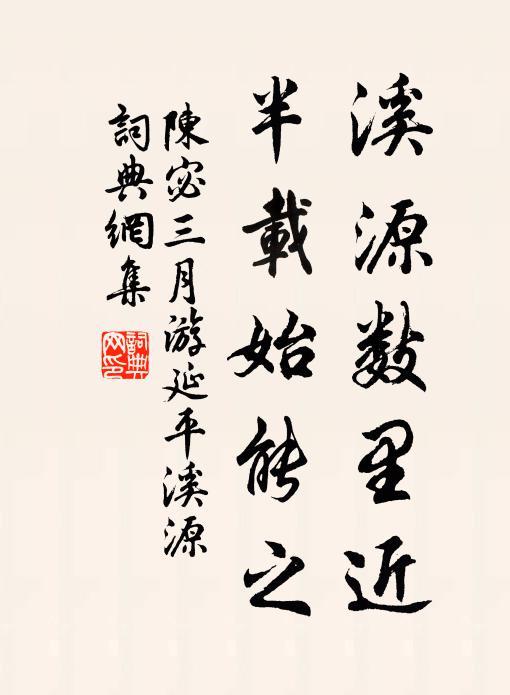 溪源數里近
半載始能之
陳宓三月游延平溪源
詞典網集
詞典網印